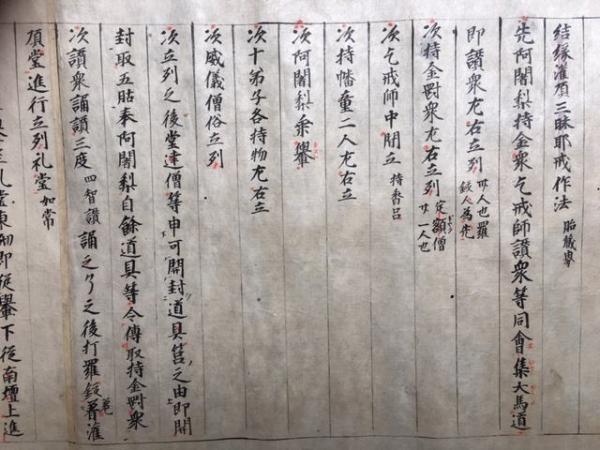 結縁灌頂三昧耶戒作法 胎蔵界
先阿闍梨持金衆乞戒師讃衆等同會集大馬道
即讃衆左右立列 廿人也羅鈸人為先
次持金對衆左右立列 定額僧廿一人也
次乞戒師中間立 持香呂
次持幡童二人左右立
次阿闍梨乗轝
次十弟子各持物左右立
次威儀僧俗立列
次立列之後堂達僧等申可開封道具筥之由即開
封取五股奉阿闍梨自餘道具等令傳取持金對衆
次讃衆誦讃三度 四智讃誦之了之後打羅鈸
頂堂進行立列礼堂 如常
礼堂東 即従轝下従南壇上進